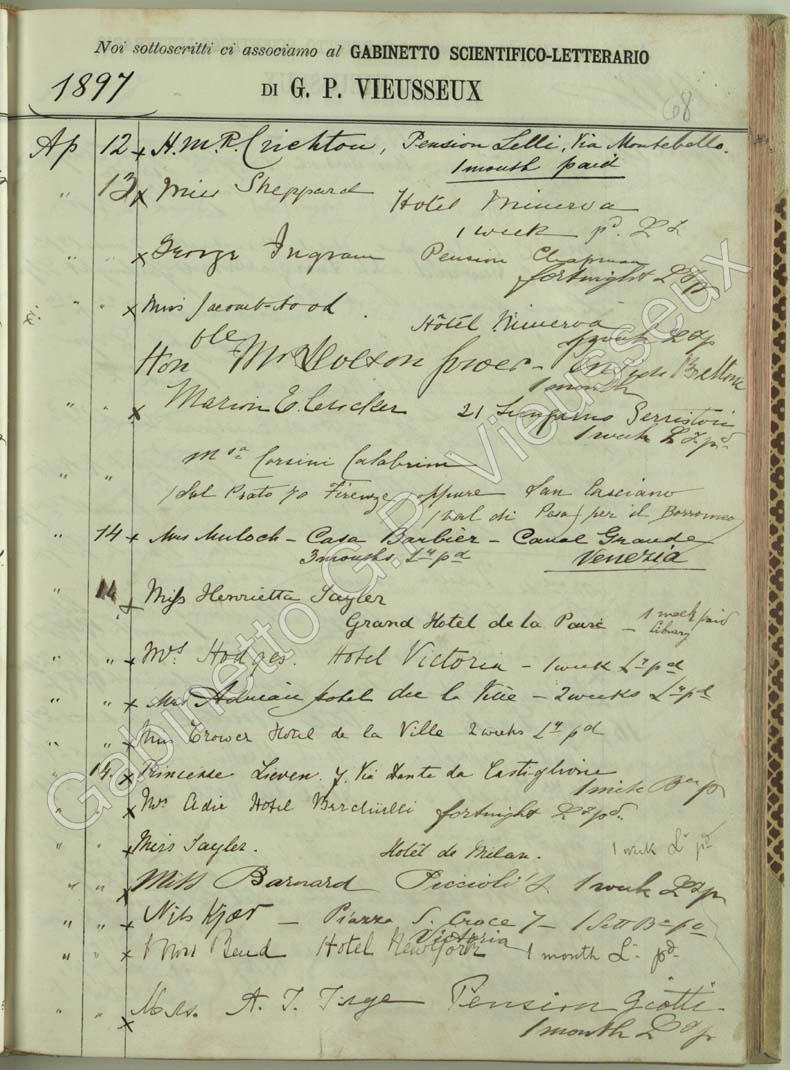 Noi sottoscritti ci associamo al GABINETTO SCIENTIFICO-LETTERARIO
1897 DI G. P. VIEUSSEUX
68
Ap 12 x H. M. R. Crichton, Pension Lelli, Via Montebello.
1 month paid
" 13 x Miss Sheppard Hotel Minerva
1 week pd.
x George Ingram Pension Chapman
fortnight
" " x Miss Jacomb-Hood. Hôtel Minerva
Honble Mrs 
1 month
" " x Marion E. Crocker 21 Lungarno Serristori
1 week pd.
Corsini Calabrini
Prato 70 Firenze oppure San Casciano
(val di Pesa) per il Borromeo
" 14 x Mrs Muloch - Casa Barbièr - Canal Grande
3 months Ly pd Venezia
" 14 x Miss Henrietta Tayler
Grand Hotel de la Paix - 1 week paid
Library
" " x Mrs Hodges. Hotel Victoria - 1 week Ly pd
" " x Mrs Adrian Hotel de la Ville - 2 weeks Ly pd
" " x Miss Crower Hotel de la Ville 2 weeks Ly pd
" 14 x Princesse Lieven. 7 Via Dante da Castiglione
" " x Mrs Adie Hotel fortnight pd.
" " x Miss Tayler. Hotel de Milan. 1 week L. pd
" " x Miss Barnard Piccioli's 1 week
" " x Nils Kjær - Piazza S. Croce 7 - 1 Sett
" " x Miss Bend Hotel New York Victoria 1 month L. pd.
" " x Mrs. A. T. Pension Giotti.
1 month
Gabinetto G.P. Vieusseux